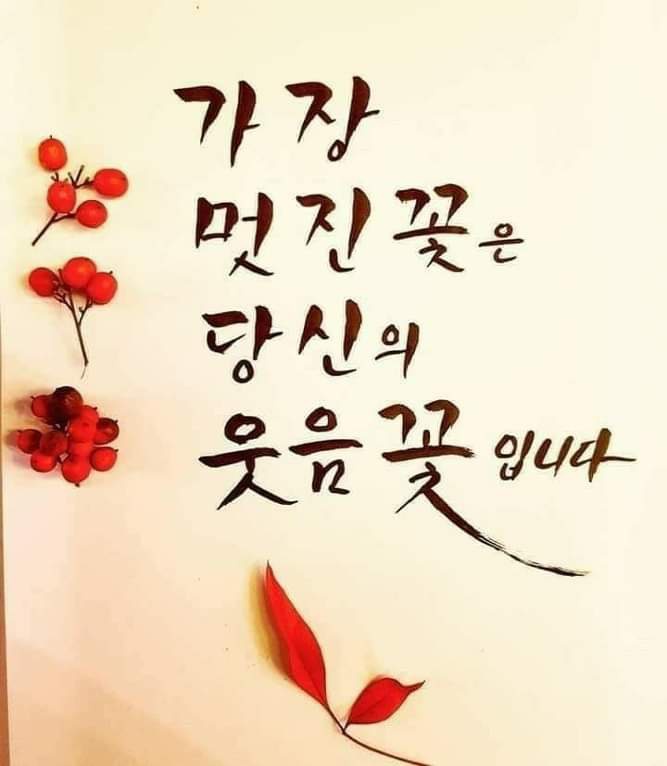 가장
멋진 꽃은
당신의
웃음꽃입니다